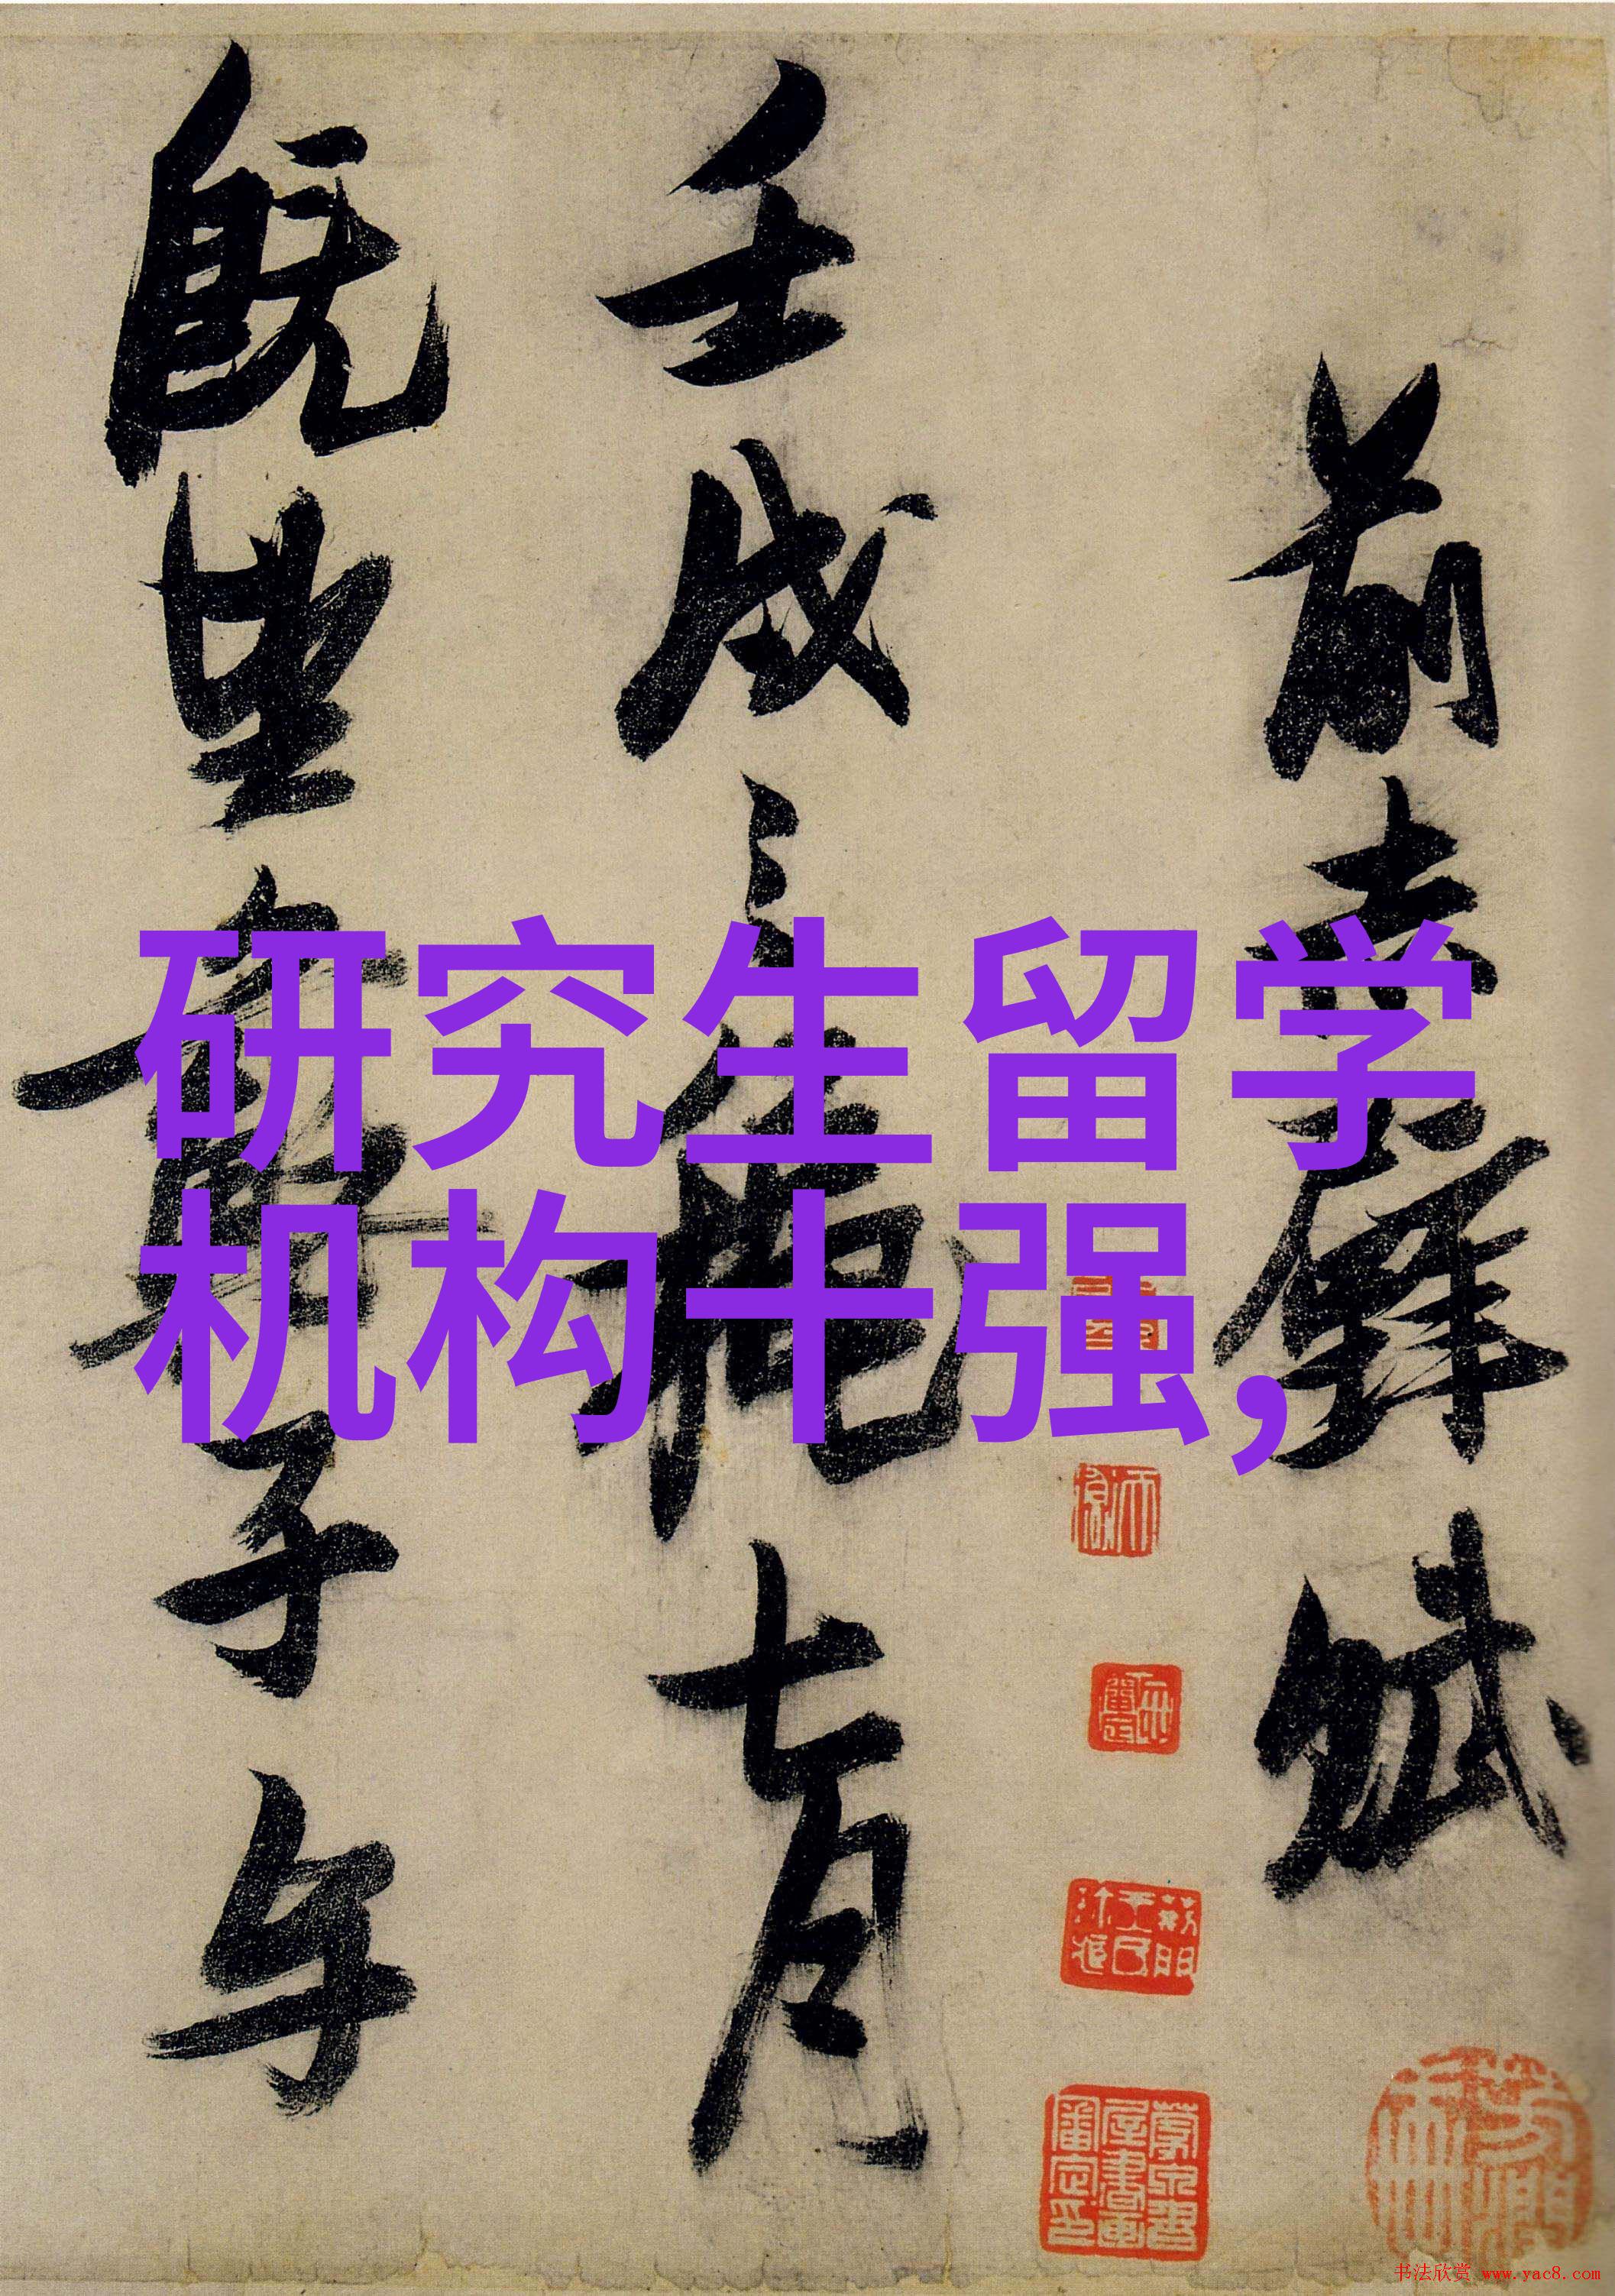 前赤壁賦
壬戌之秋七月
既望蘇子与
研究生留学
机构十强,
书法欣赏 www.yac8.com